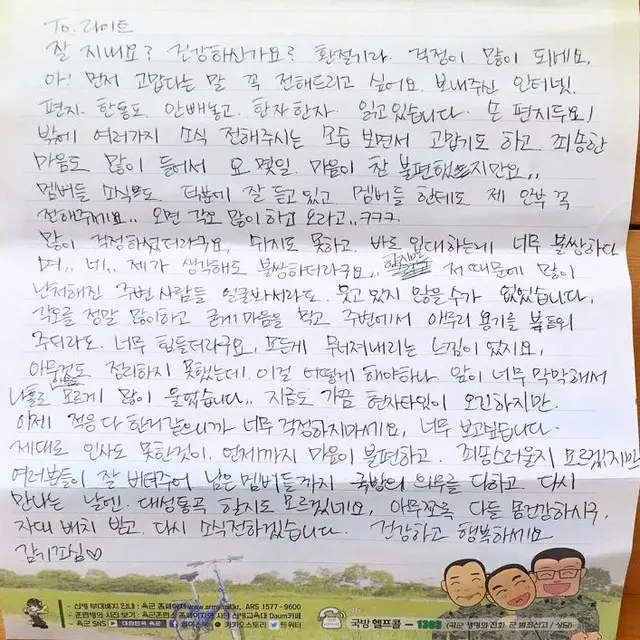 To. 라이트
잘 지내요? 건강하신가요? 환절기라. 걱정이 많이 되네요.
아! 먼저 고맙다는 말 꼭 전해드리고 싶어요. 보내주신 인터넷.
편지. 한통도 안빼놓고. 한자 한자. 읽고있습니다. 손 편지두요!
밖에 여러가지 소식 전해주시는 모습 보면서 고맙기도 하고 죄송한
마음도 많이 들어서 요 몇일. 마음이 참 불편했지만요..
멤버들 소식도 덕분에 잘 듣고있고. 멤버들 한테도 제 안부 꼭
전해주세요.. 오면 각오 많이 하고 오라고.. ㅋㅋㅋ.
많이 걱정하셨더라구요, 쉬지도 못하고. 바로 입대하는게 너무 불쌍하다
며.. 네.. 제가 생각해도 불쌍하더라구요.. 저 때문에 많이
난처해진 주변 사람들 얼굴봐서라도. 웃고있지 않을수가 없었습니다.
각오를 정말 많이하고 굳게 마음을 먹고 주변에서 아무리 용기를 북돋워
주더라도. 너무 힘들더라구요, 모든게 무너져내리는 느낌이 있지요,
아무것도 정리하지 못했는데 이걸 어떻게 해야하나. 앞이 너무 막막해서
나홀로 모르게 많이 울었습니다.. 지금도 가끔 현자타임이 오긴하지만.
이제 적응 다 한거같으니까 너무 걱정하지마세요, 너무 보고싶습니다.
제대로 인사도 못한것이. 언제까지 마음이 불편하고. 죄송스러울지 모르겠지만
여러분들이 잘 버텨주어 남은 멤버들까지 국방의 의무를 다하고 다시
만나는 날엔. 대성통곡 할지도 모르겠네요, 아무쪼록 다들 몸건강하시구,
자대 배치 받고. 다시 소식전하겠습니다. 건강하고 행복하세요
감기조심♡
- 신병 부대배치 안내 : 육군 홈페이지 www.army.mil.kr, ARS 1577-9600
- 훈련병의 사진 보기 : 육군훈련소 홈페이지와 사단 신병교육대 Daum카페
- 육군 SNS 대한민국 육군 카카오스토리 트위터
국방 헬프콜 – 1303 (육군 생명의 전화, 군 범죄신고 / 상담)